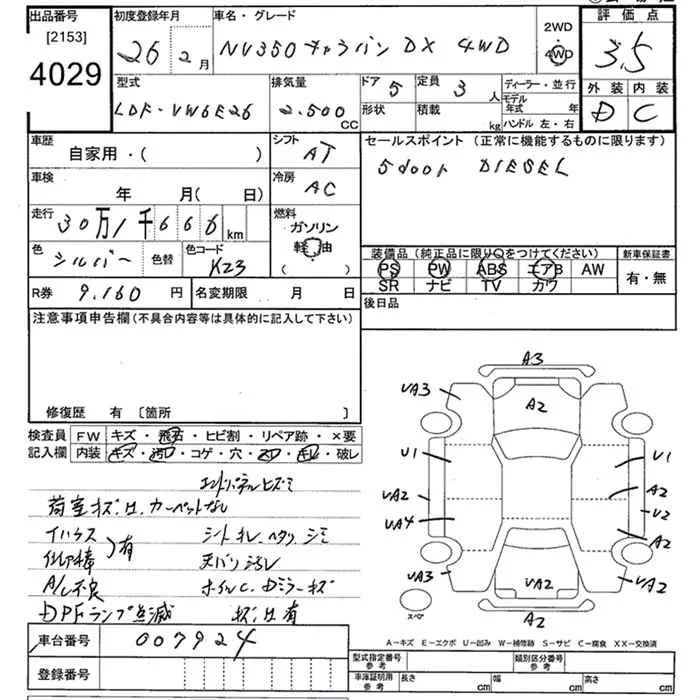 出品番号 初度登録年月 車名・グレード 2WD 評価点
[2153] 26年2月 NV350キャラバン DX 4WD 4WD 3.5
4029 型式 排気量 ドア 5 定員 3人 ディーラー・並行 外装 内装
LDF-VW6E26 2.500CC 形状 積載 kg モデル年式 年 D C
ハンドル 左・右
車歴 自家用・( ) シフト AT セールスポイント (正常に機能するものに限ります)
車検 年 月(日) 冷房 AC 5door DIESEL
走行 30万1千666km 燃料 ガソリン
軽油
( )
色 シルバー 色替 色コード K23 装備品(純正品に限り○をつけてください) 新車保証書
PS PW ABS エアB AW 有・無
R券 9,160円 名変期限 月 日 SR ナビ TV カワ
後日品
注意事項申告欄(不具合内容等は具体的に記入して下さい)
修復歴 有 [箇所 ]
検査員 FW キズ・飛石・ヒビ割・リペア跡・×要
記入欄 内装 キズ・汚れ・コゲ・穴・スレ・キレ・破レ
荷室キズ、凹、カーペットなし
有 シートキレ、ヘタリ、シミ
天バリ汚レ
A/C不良 ホイルC、Dミラーキズ
DPFランプ点滅 キズ、凹有
A3
UA3 A2 A3
U1 U1
UA2 A2
UA4 U2
A2
UA3 UA2 UA2
スペア A2
A－キズ E－エクボ U－凹み W－補修跡 S－サビ C－腐食 XX－交換済
車台番号 007924
登録番号 型式指定番号 参考 類別区分番号 参考
車庫証明用 参考 長さ cm 幅 cm 高さ cm